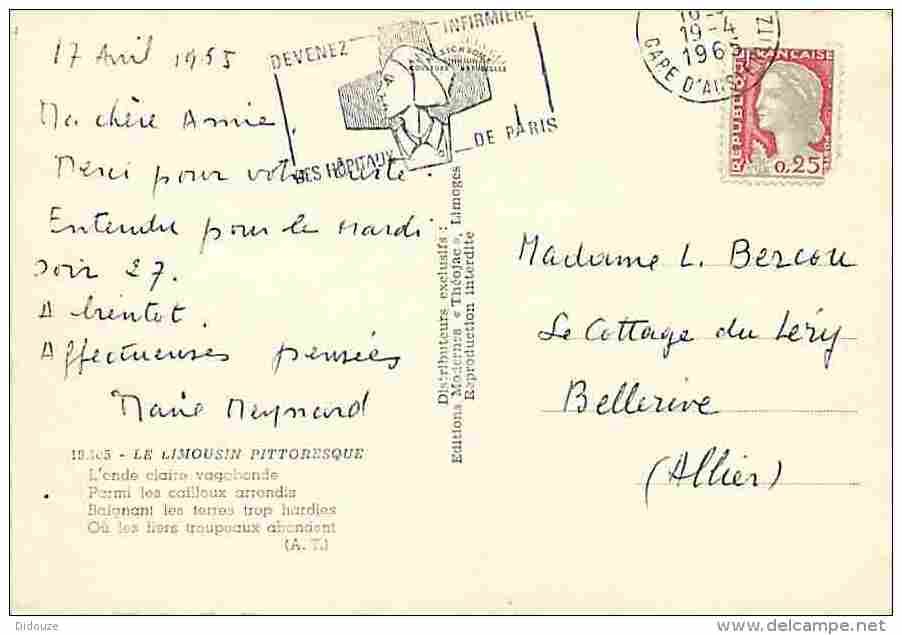 17 Avril 1965
DEVENEZ INFIRMIÈRE
DES HÔPITAUX DE PARIS
19-4
1965
GARE D'AUSTERLITZ
REPUBLIQUE FRANÇAISE
0,25
Ma chère Annie.
Merci pour votre carte.
Entendu pour le Mardi
soir 27.
A bientot.
Affectueuses pensées
Marie Meynard
Distributeurs exclusifs :
Editions Modernes « Théojac », Limoges
Reproduction interdite
Madame L. Bercou
Le Cottage du Léry
Bellerive
(Allier)
LE LIMOUSIN PITTORESQUE
L'onde claire vagabonde
Parmi les cailloux arrondis
Baignant les terres trop hardies
Où les fiers troupeaux abondent
(A. T.)
Didouze
www.delcampe.net